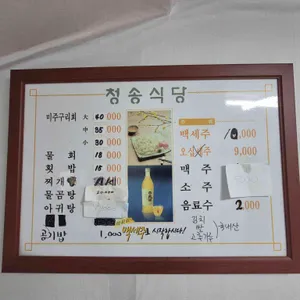 청송식당
미주구리회 大 40,000
中 35,000
小 30,000
물회 18,000
횟밥 18,000
찌개
물곰탕
아귀탕
공기밥 1,000
백세주로 시작합시다!
백세주 10,000
오십세주 9,000
맥주
소주
음료수 2,000
김치
쌀
고춧가루
국내산